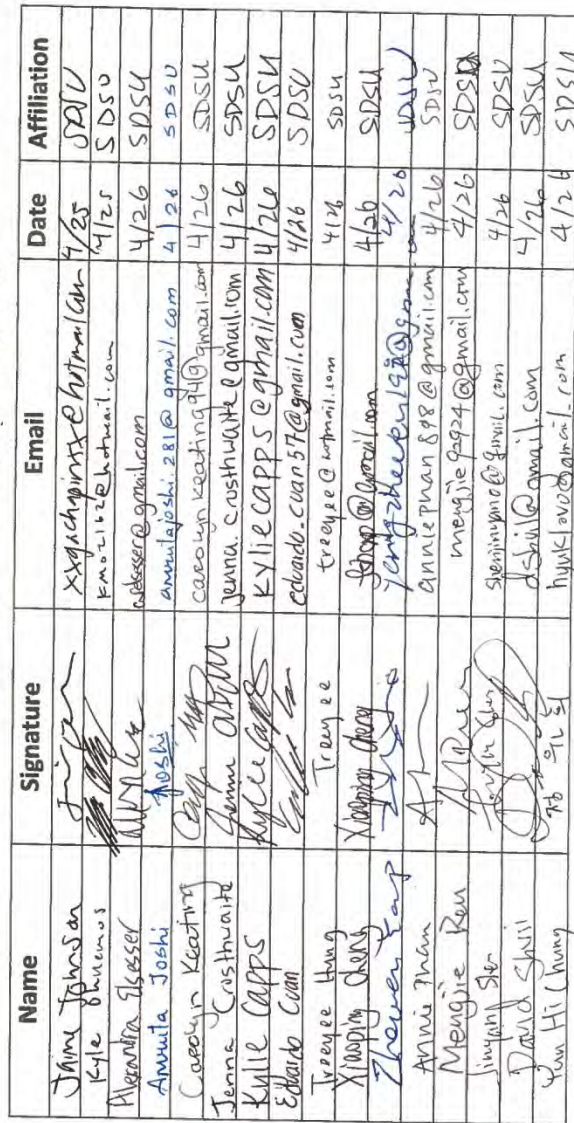 Name Signature Email Date Affiliation
Jaime Johnson 4/25 SDSU
Kyle kmo2162@hotmail.com 4/25 SDSU
Alexandra Elsesser aelsesser@gmail.com 4/26 SDSU
Amruta Joshi Joshi amrutajoshi.281@gmail.com 4/26 SDSU
Carolyn Keating carolynkeating94@gmail.com 4/26 SDSU
Jenna Crosthwaite jenna.crosthwaite@gmail.com 4/26 SDSU
Kylie Capps Kylie Capps kyliecapps@gmail.com 4/26 SDSU
Eduardo Cuan eduardo.cuan57@gmail.com 4/26 SDSU
Treeyee Hung Treeyee treeyee@hotmail.com 4/26 SDSU
Xiaoping Cheng Xiaoping Cheng 4/26 SDSU
4/26 SDSU
Annie Phan anniephan898@gmail.com 4/26 SDSU
Mengjie Ren mengjie92924@gmail.com 4/26 SDSU
Jinyping Shen 4/26 SDSU
David Shvil dshvil@gmail.com 4/26 SDSU
Yun Hi Chung 4/26 SDSU